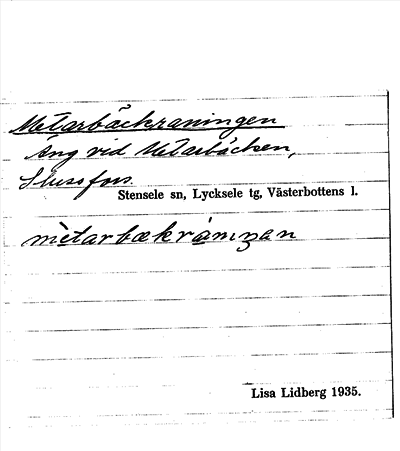 Metarbäckraningen
Äng vid Metarbäcken,
Slussfors
Stensele sn, Lycksele tg, Västerbottens l.
mètarbækrániŋan
Lisa Lidberg 1935.